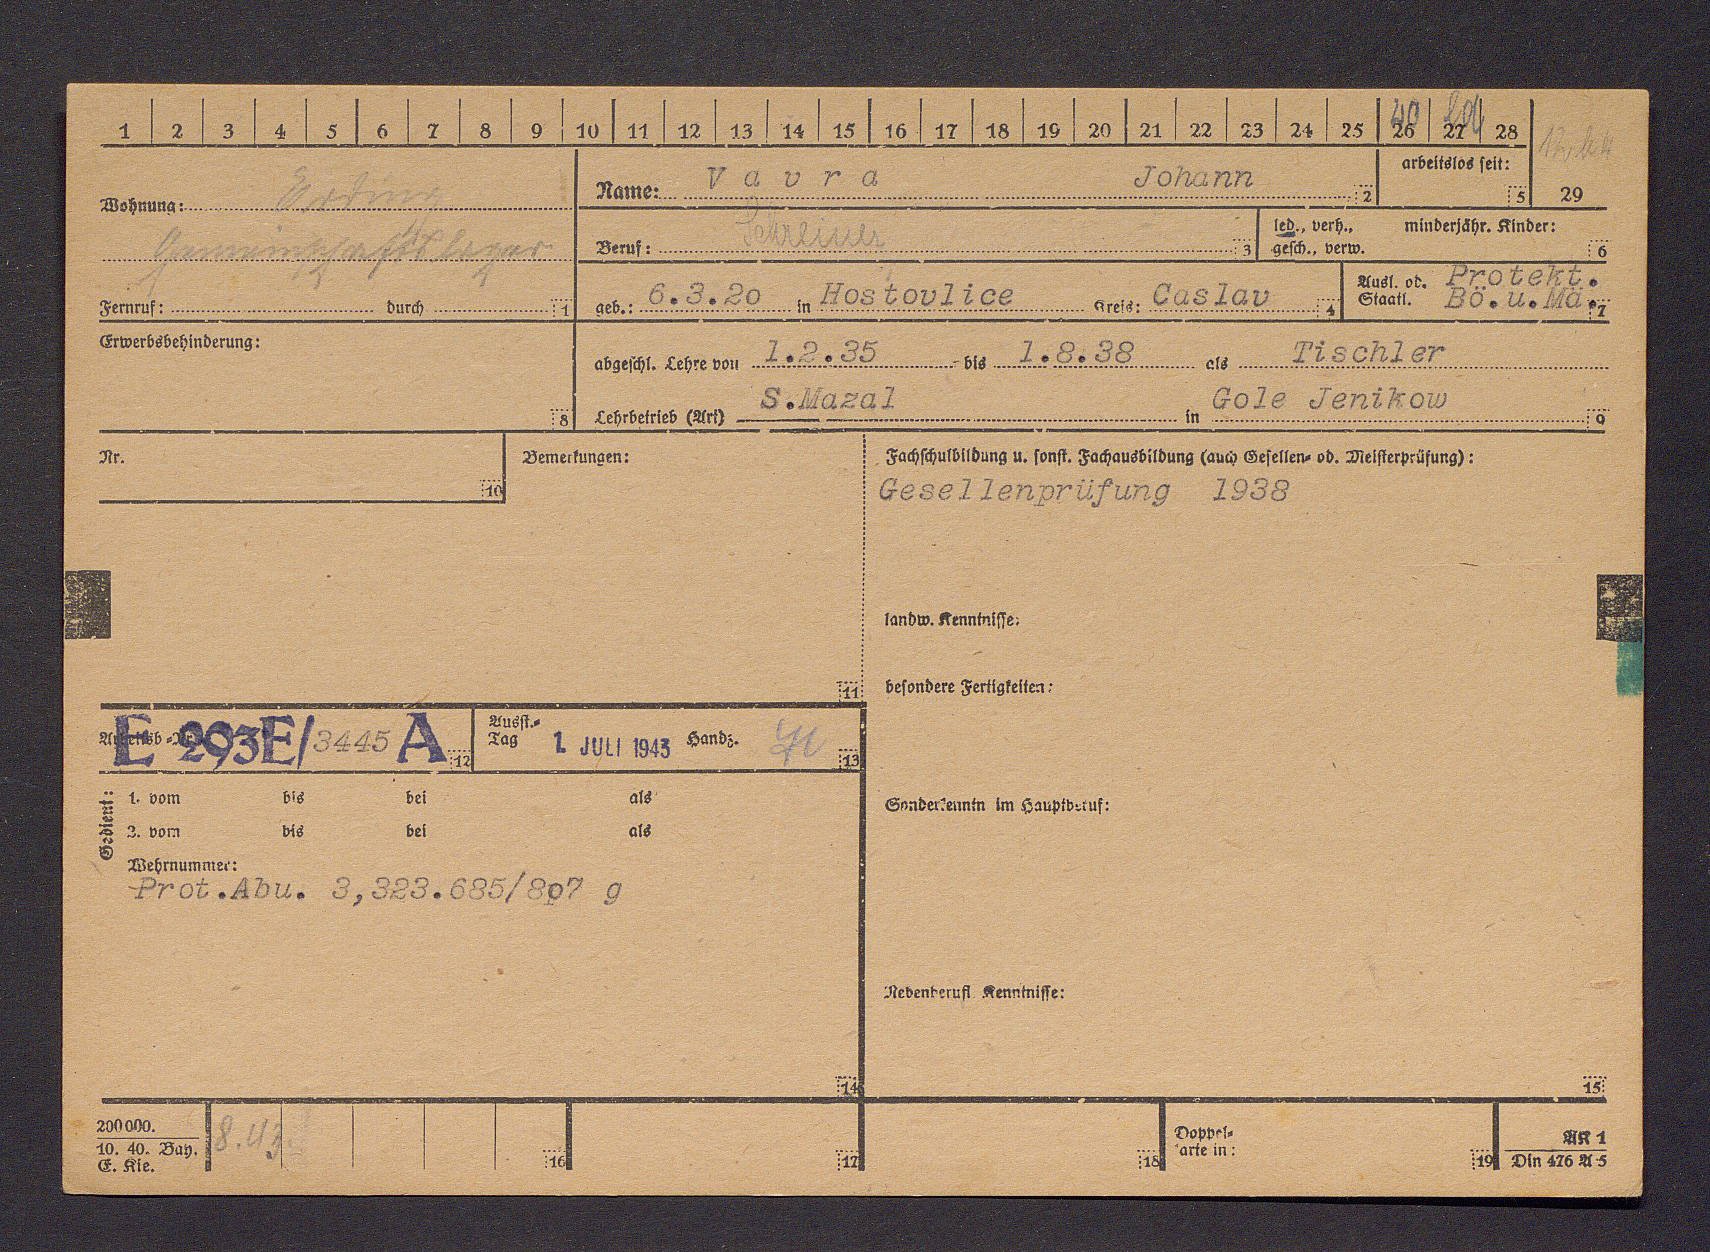 1 2 3 4 5 6 7 8 9 10 11 12 13 14 15 16 17 18 19 20 21 22 23 24 25 26 27 28
40
29
arbeitslos seit:
5
Wohnung: Erding
Gemeinschaftslager
Fernruf: durch 1
Name: Vavra Johann 2
Beruf: Schreiner 3
led., verh.,
gesch., verw.
minderjähr. Kinder:
6
geb.: 6.3.20 in Hostovlice Kreis: Caslav 4
Ausl. od.
Staatl.
Protekt.
Bö.u.Mä. 7
Erwerbsbehinderung:
8
abgeschl. Lehre von 1.2.35 bis 1.8.38 als Tischler
Lehrbetrieb (Art) S.Mazal in Gole Jenikow 9
Nr.
10
Bemerkungen:
11
Fachschulbildung u. sonst. Fachausbildung (auch Gesellen- od. Meisterprüfung):
Gesellenprüfung 1938
landw. Kenntnisse:
besondere Fertigkeiten:
Sonderkenntn im Hauptberuf:
Nebenberufl Kenntnisse:
15
Arbeitsb-Nr. E 293E/3445 A 12
Ausst.-
Tag 1. JULI 1943 Handz. 13
Gedient:
1. vom bis bei als
2. vom bis bei als
Wehrnummer:
Prot.Abu. 3,323.685/807 g
14
200000.
10. 40. Bay.
E. Kle.
8.43.
16
17
18
Doppel-
karte in:
19
AK 1
Din 476 A 5